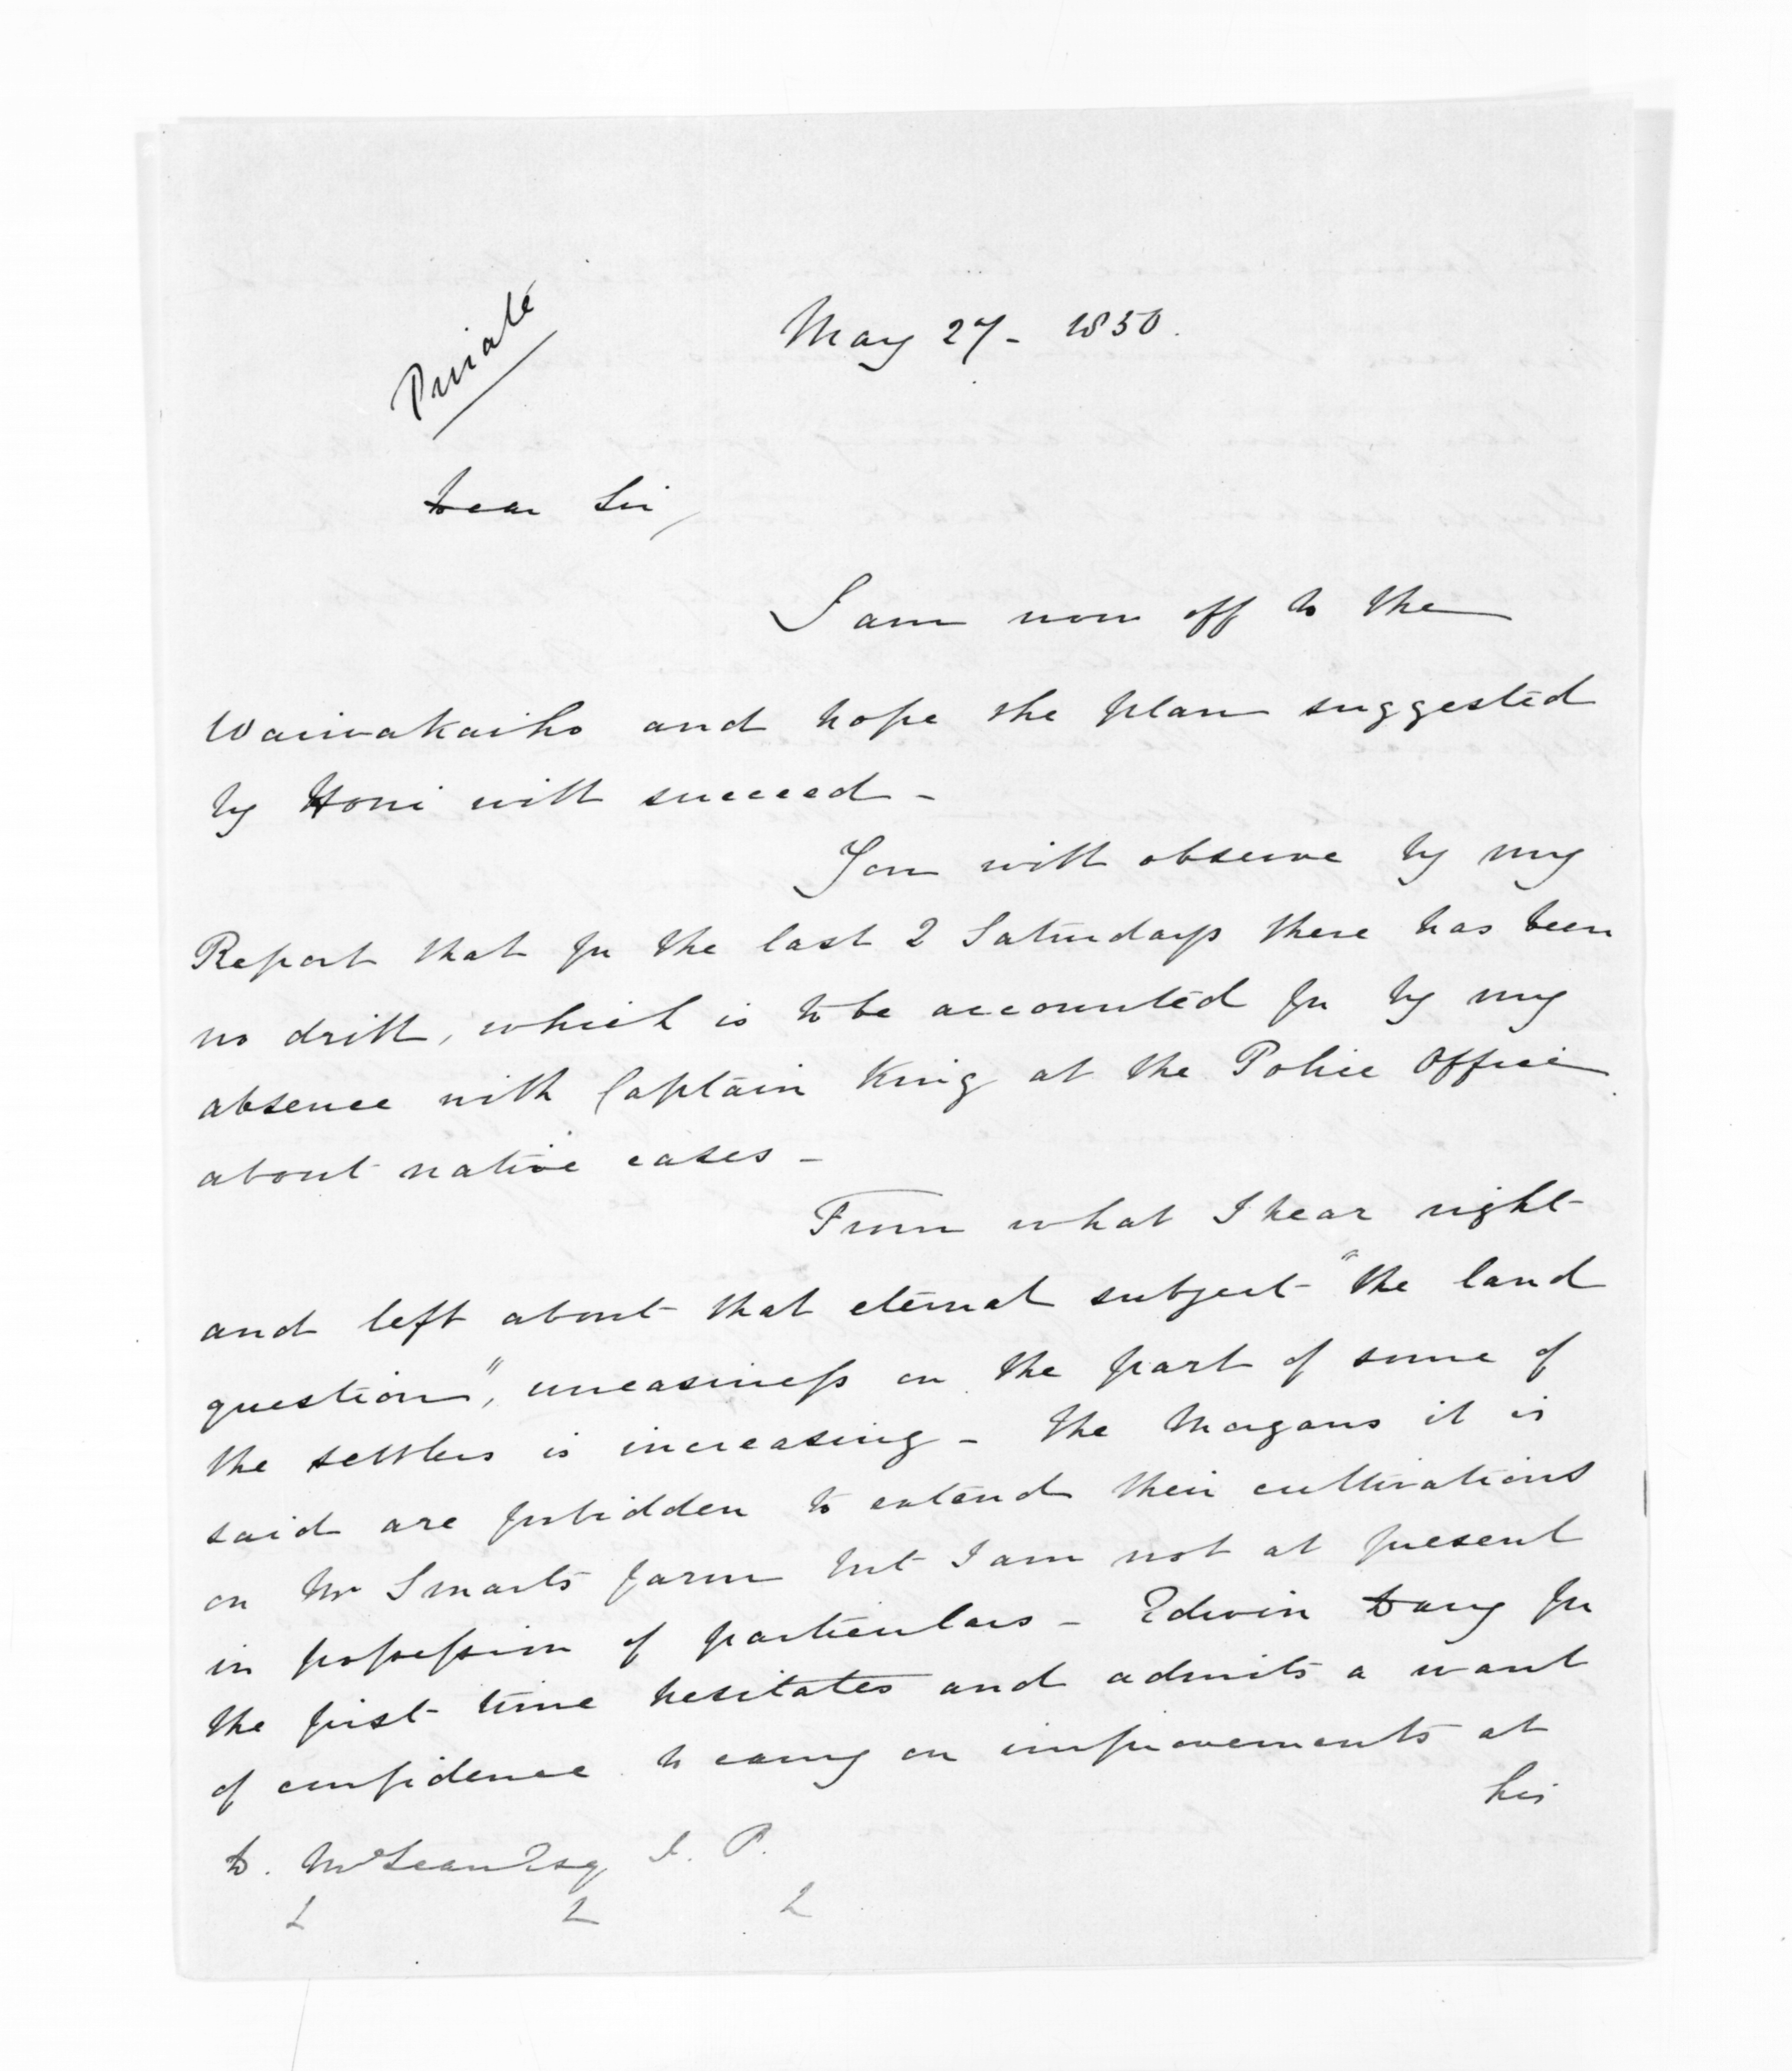 Private
May 27 - 1850.
Dear Sir,
I am now off to the
Waiwakaiho and hope the plan suggested
by Honi will succeed -
You will observe by my
Report that for the last 2 Saturdays there has been
no drill, which is to be accounted for by my
absence with Captain King at the Police Office
about native cases -
From what I hear right
and left about that eternal subject "the land
question", uneasiness on the part of some of
the settlers is increasing - The Morgans it is
said are forbidden to extend their cultivations
on Mr Smarts farm but I am not at present
in possession of particulars - Edwin Davy for
the first time hesitates and admits a want
of confidence to carry on improvements at
his
D. McLean Esq J. P.